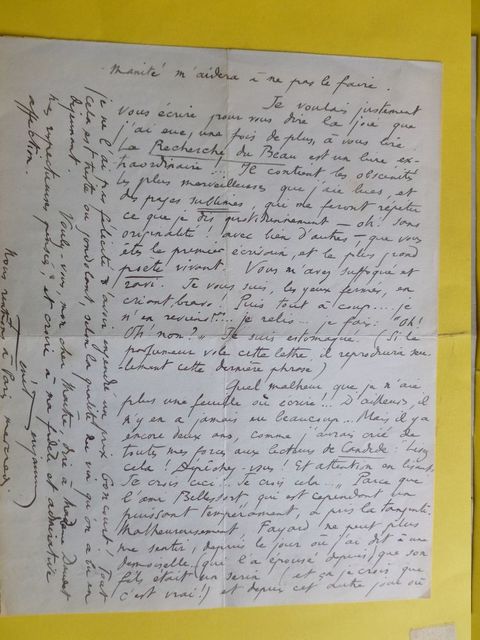 manité m'aidera à ne pas le faire.
Je voulais justement
vous écrire pour vous dire la joie que
j'ai eue, une fois de plus, à vous lire.
La Recherche du Beau est un livre ex-
traordinaire... Il contient les obscénités
les plus merveilleuses que j'aie lues, et
des pages sublimes, qui me feront répéter
ce que je dis quotidiennement — oh! sans
originalité! avec bien d'autres, — que vous
êtes le premier écrivain, et le plus grand
poète vivant. Vous m'avez suffoqué et
ravi. Je vous suis, les yeux fermés, en
criant bravo! Puis tout à coup... je
n'en reviens!... je relis... je fais: "Oh!
Oh! non?" Je suis estomaqué. (Si le
parfumeur vole cette lettre, il reproduira seu-
lement cette dernière phrase)
Quel malheur que je n'aie
plus une feuille où écrire!!! D'ailleurs, il
n'y en a jamais eu beaucoup... Mais, il y a
encore deux ans, comme j'aurais crié de
toutes mes forces aux lecteurs de Candide: Lisez
cela! Dépêchez-vous! Et attention en lisant.
Je crois ceci... Je crois cela... Parce que
l'ami Bellessort, qui est cependant un
puissant tempérament, a pris la tangente.
Malheureusement Fayard ne peut plus
me sentir, depuis le jour où j'ai dit à une
demoiselle (qui l'a épousé depuis) que son
fils était un serin (et ça je crois que
c'est vrai!) et depuis cet autre jour où
je ne l'ai pas félicité d'avoir un prix Goncourt! Tout
cela est triste ou gondolant, selon la qualité du vin qu'on a bu en
déjeunant. Voulez-vous, mon cher Maître, dire à Madame
mes respectueuses pensées, et croire à ma fidèle et admirative
affection.
Nous rentrons à Paris mercredi.